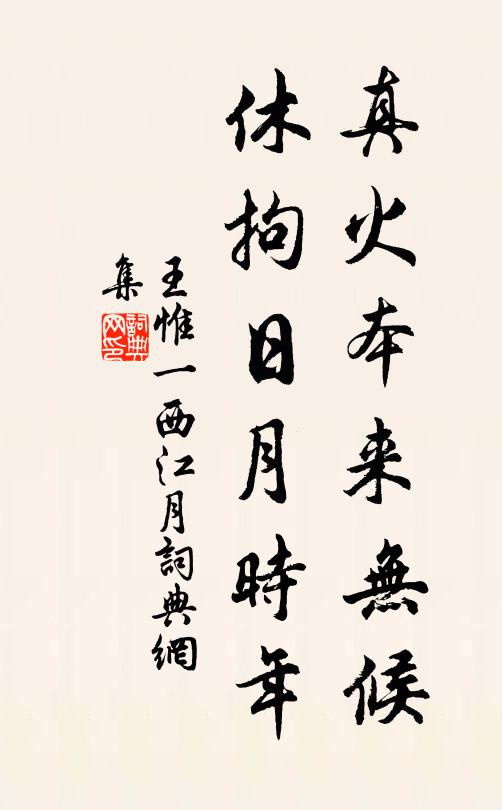 真火本来無候
休拘日月時年
王惟一西江月詞典網
集
詞典网印